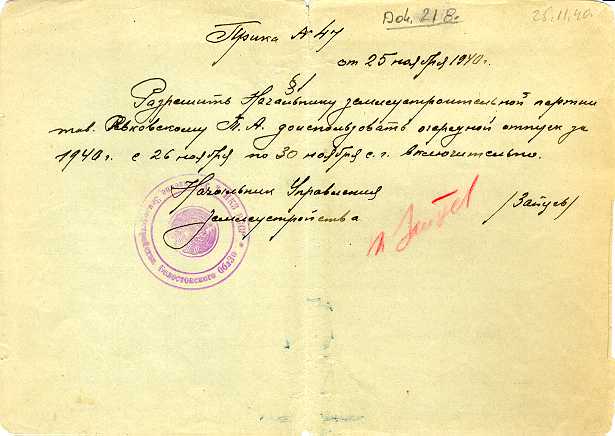 Dok. 21 8.
25.11.40.
Приказ № 47
от 25 ноября 1940г.
§1
Разрешить Начальнику землеустроительной партии
тов. Рвковскому Т. А. доиспользовать очередной отпуск за
1940г. с 26 ноября по 30 ноября с. г. включительно.
Начальник Управления
Землеустройства /Зайцев/
Зайцев
Белостокского Облзо